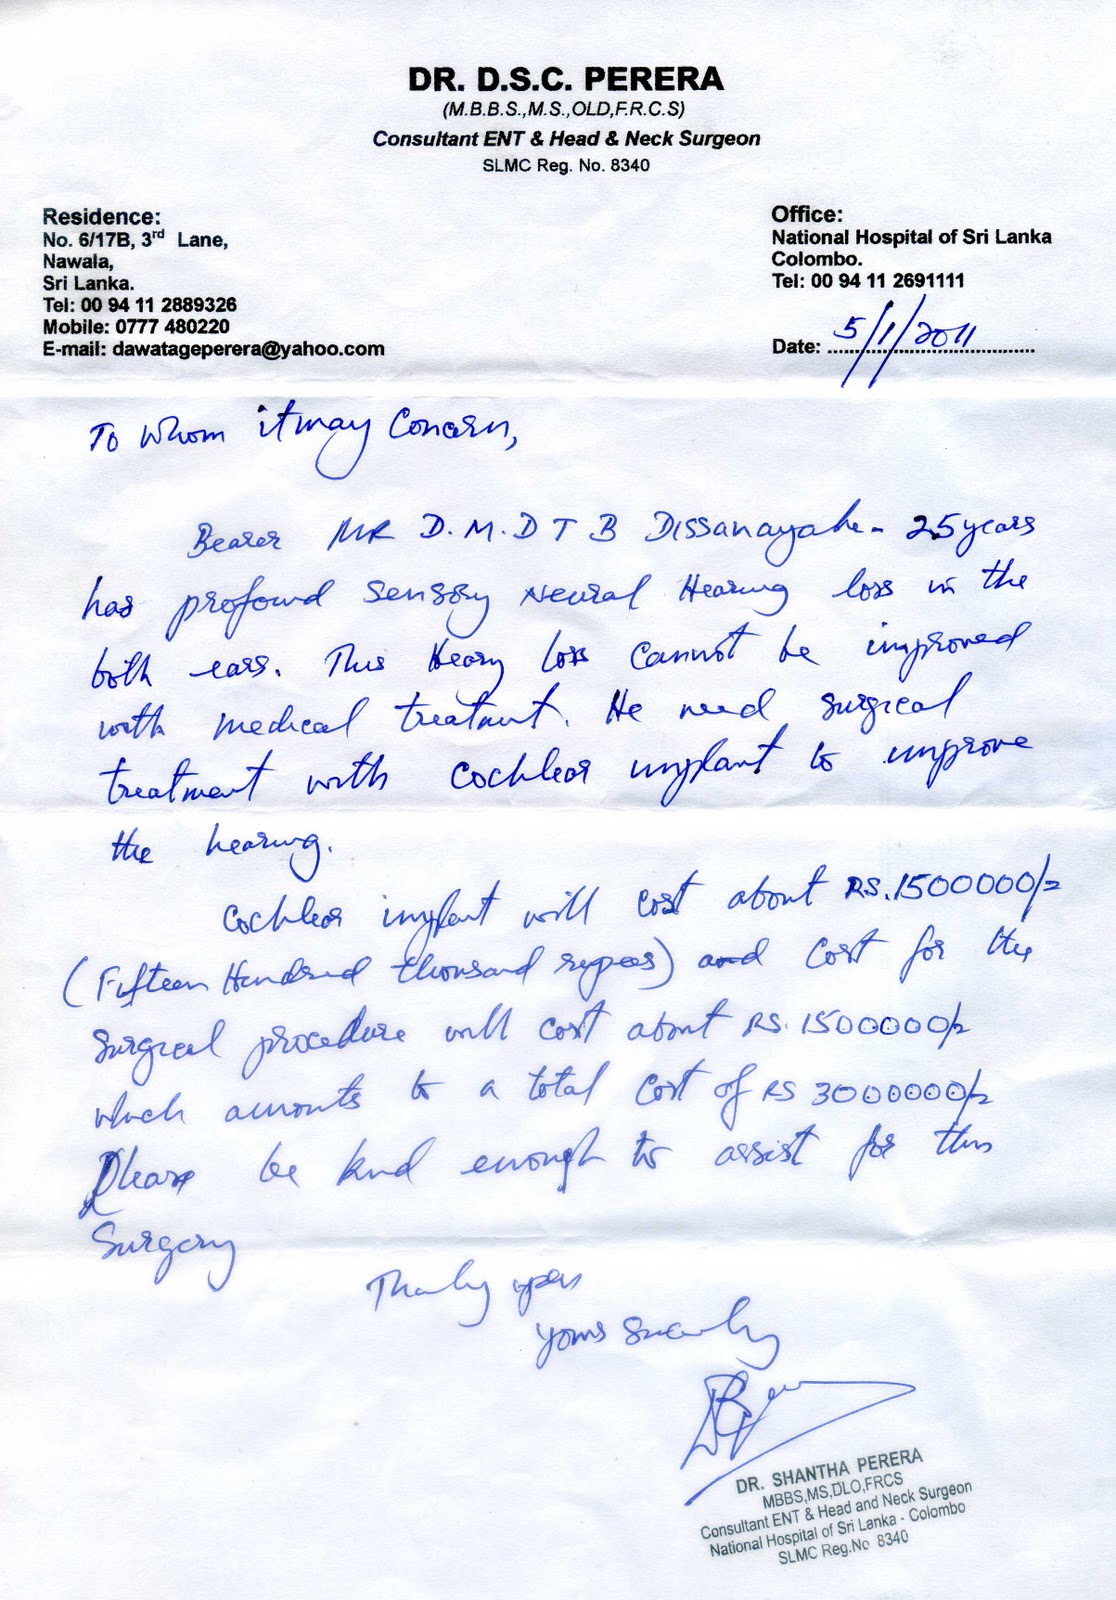 DR. D.S.C. PERERA
(M.B.B.S.,M.S.,OLD,F.R.C.S)
Consultant ENT & Head & Neck Surgeon
SLMC Reg. No. 8340
Residence:
No. 6/17B, 3rd Lane,
Nawala,
Sri Lanka.
Tel: 00 94 11 2889326
Mobile: 0777 480220
E-mail: dawatageperera@yahoo.com
Office:
National Hospital of Sri Lanka
Colombo.
Tel: 00 94 11 2691111
Date: 5/1/2011
To Whom it may Concern,
Bearer MR D.M.D T B Dissanayake - 25 years
has profound sensory Neural Hearing loss in the
both ears. This Hearing loss cannot be improved
with medical treatment. He need surgical
treatment with cochlear implant to improve
the hearing.
Cochlear implant will cost about RS.1500000/=
(Fifteen Hundred thousand rupees) and cost for the
surgical procedure will cost about RS.1500000/=
which amounts to a total cost of RS 3000000/=
Please be kind enough to assist for this
Surgery
Thanking you
Yours sincerely
DR. SHANTHA PERERA
MBBS,MS,DLO,FRCS
Consultant ENT & Head and Neck Surgeon
National Hospital of Sri Lanka - Colombo
SLMC Reg.No 8340